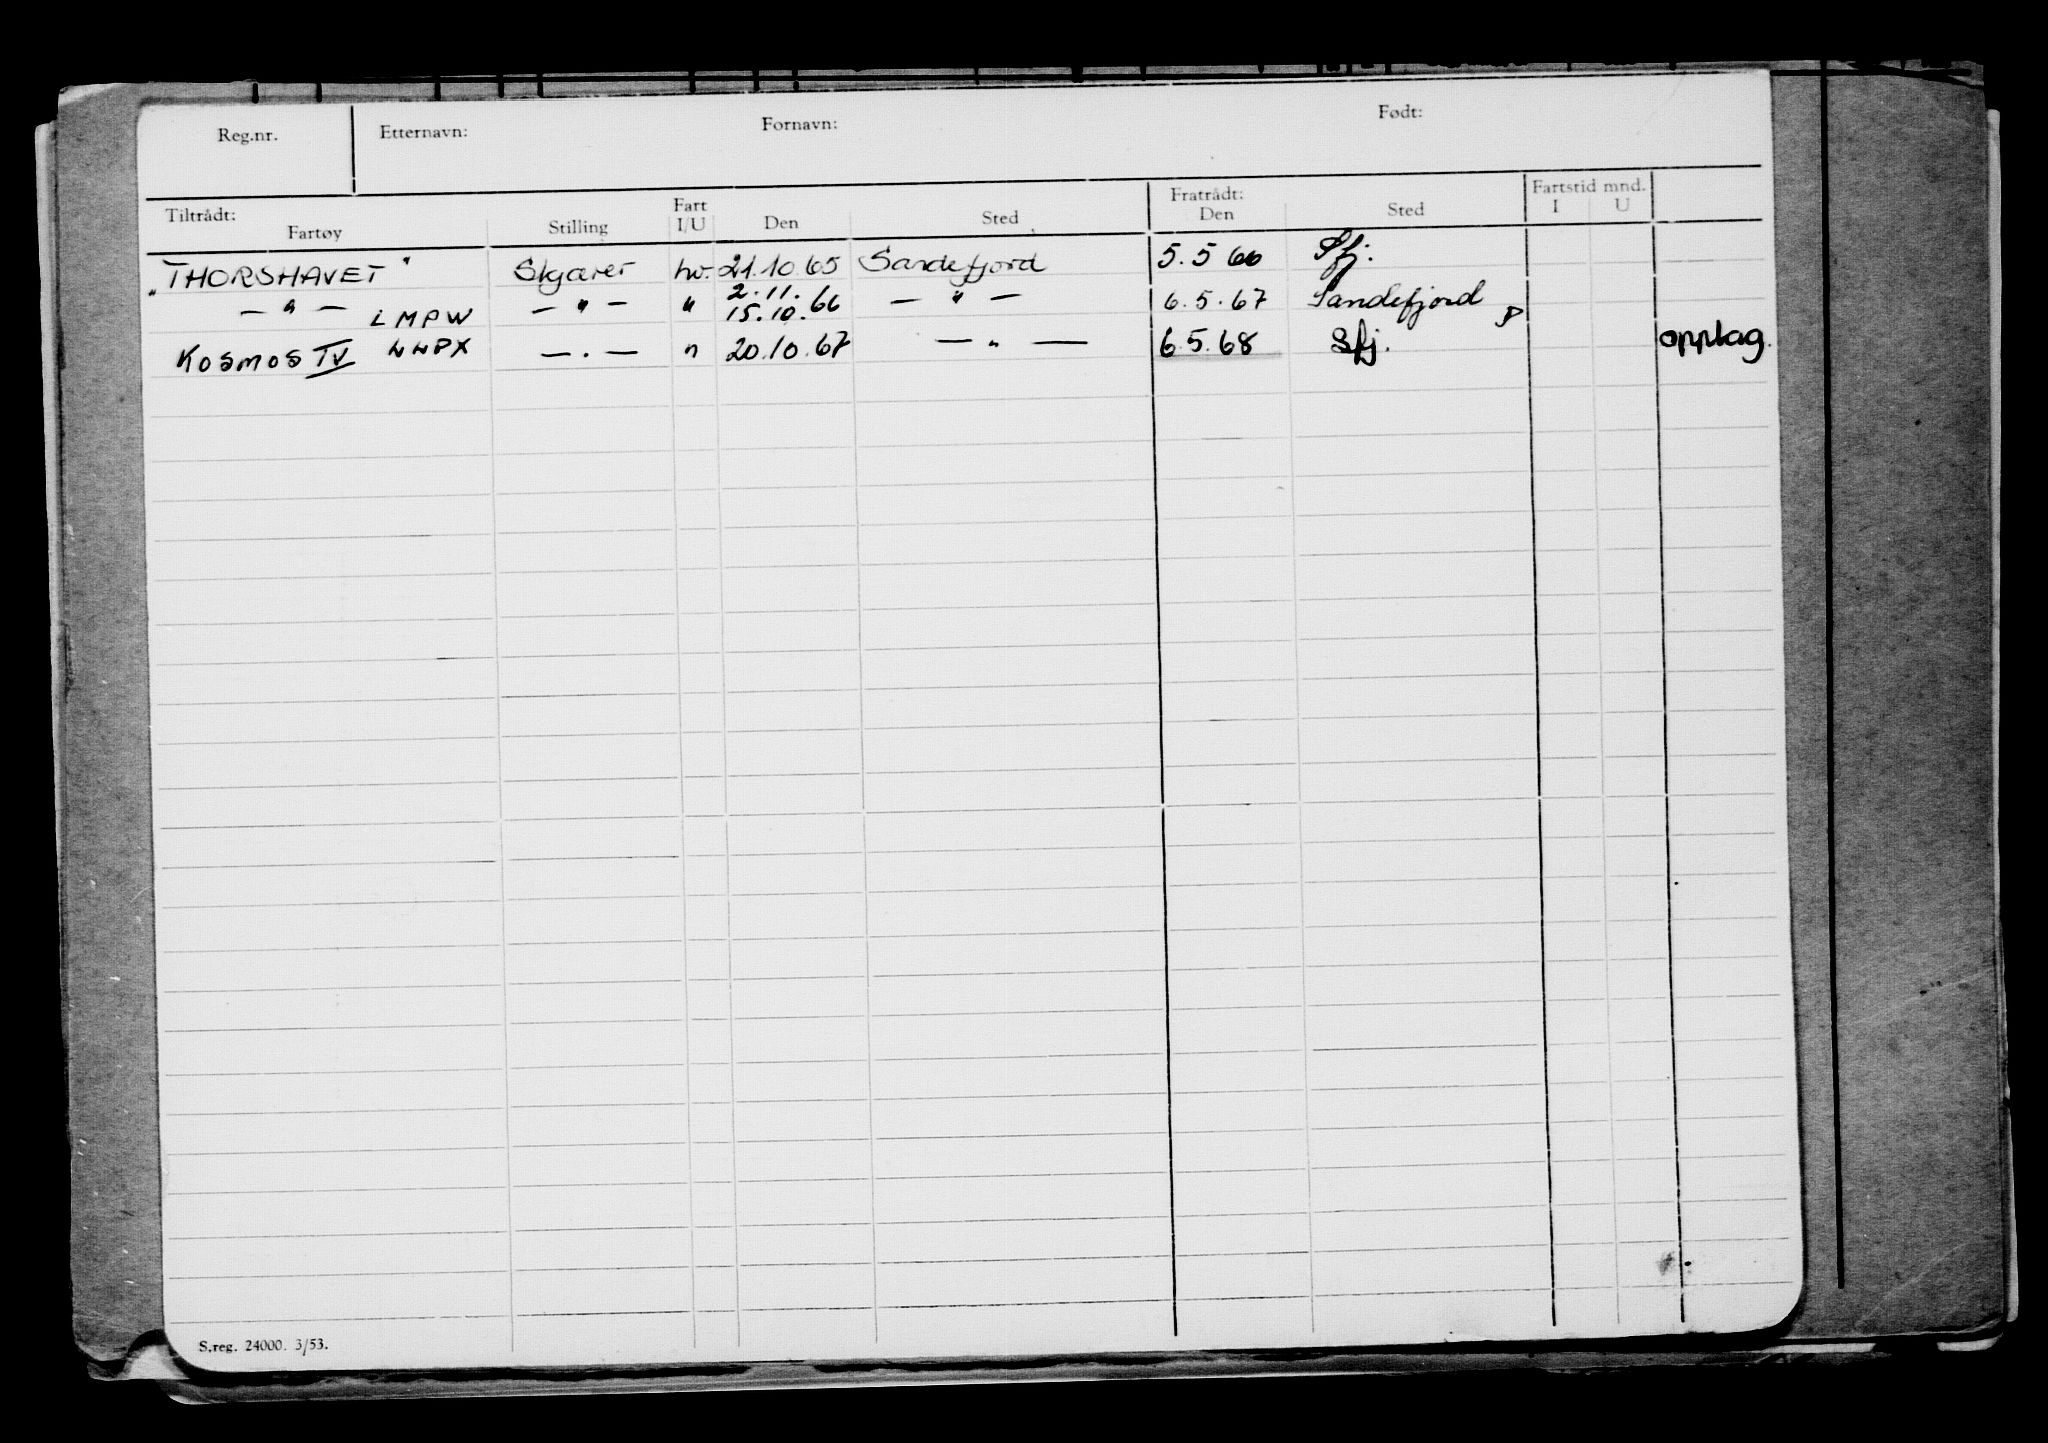 Reg.nr. Etternavn: Fornavn: Født:
Tiltrådt: Fartøy Stilling Fart I/U Den Sted Fratrådt: Den Sted Fartstid mnd. I U
"THORSHAVET" Skjærer hv. 21.10.65 Sandefjord 5.5 66 Sfj.
— " — LMPW — " — " 2.11. 15.10.66 — " — 6.5.67 Sandefjord
KOSMOS IV — . — " 20.10.67 — " — 6.5.68 Sfj. opplag.
S.reg. 24000. 3/53.